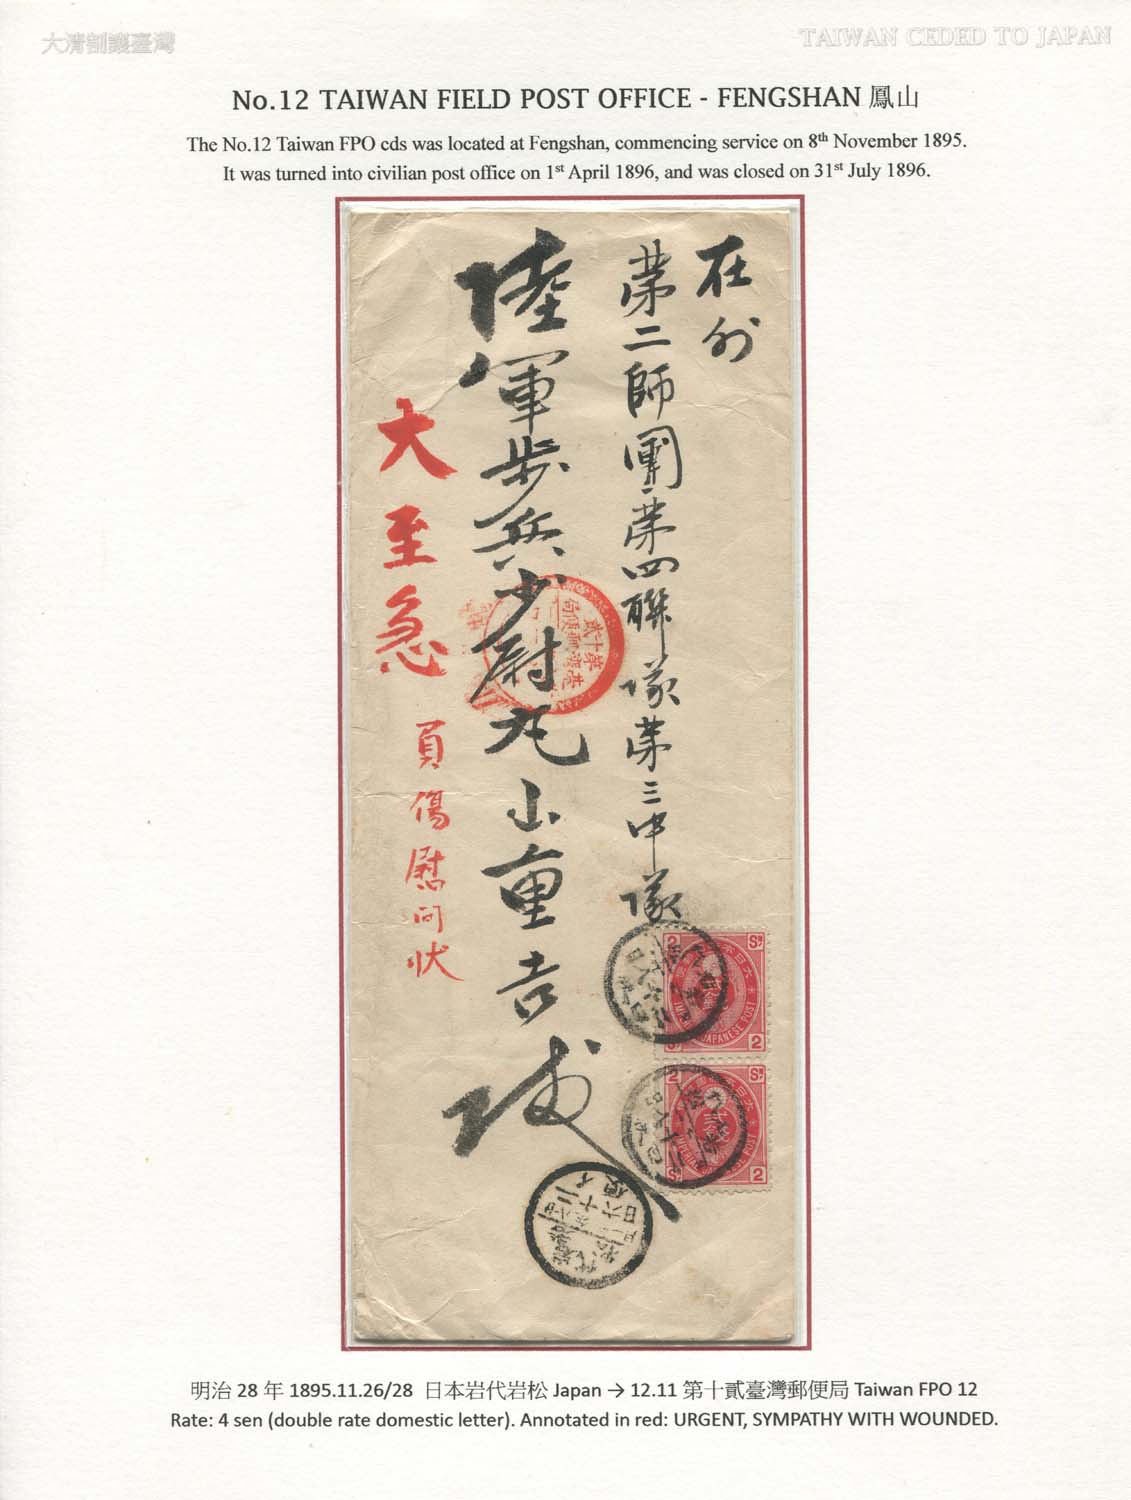 大清割讓臺灣
TAIWAN CEDED TO JAPAN
No.12 TAIWAN FIELD POST OFFICE - FENGSHAN 鳳山
The No.12 Taiwan FPO cds was located at Fengshan, commencing service on 8th November 1895.
It was turned into civilian post office on 1st April 1896, and was closed on 31st July 1896.
在外
第二師團第四聯隊第三中隊
陸軍歩兵少尉丸山重吉殿
大至急
負傷慰問状
第十貳
臺灣郵便局
2 Sn
JAPANESE POST
2
2 Sn
IMPERIAL JAPANESE POST
Sn 2
明治 28 年 1895.11.26/28 日本岩代岩松 Japan → 12.11 第十貳臺灣郵便局 Taiwan FPO 12
Rate: 4 sen (double rate domestic letter). Annotated in red: URGENT, SYMPATHY WITH WOUNDED.